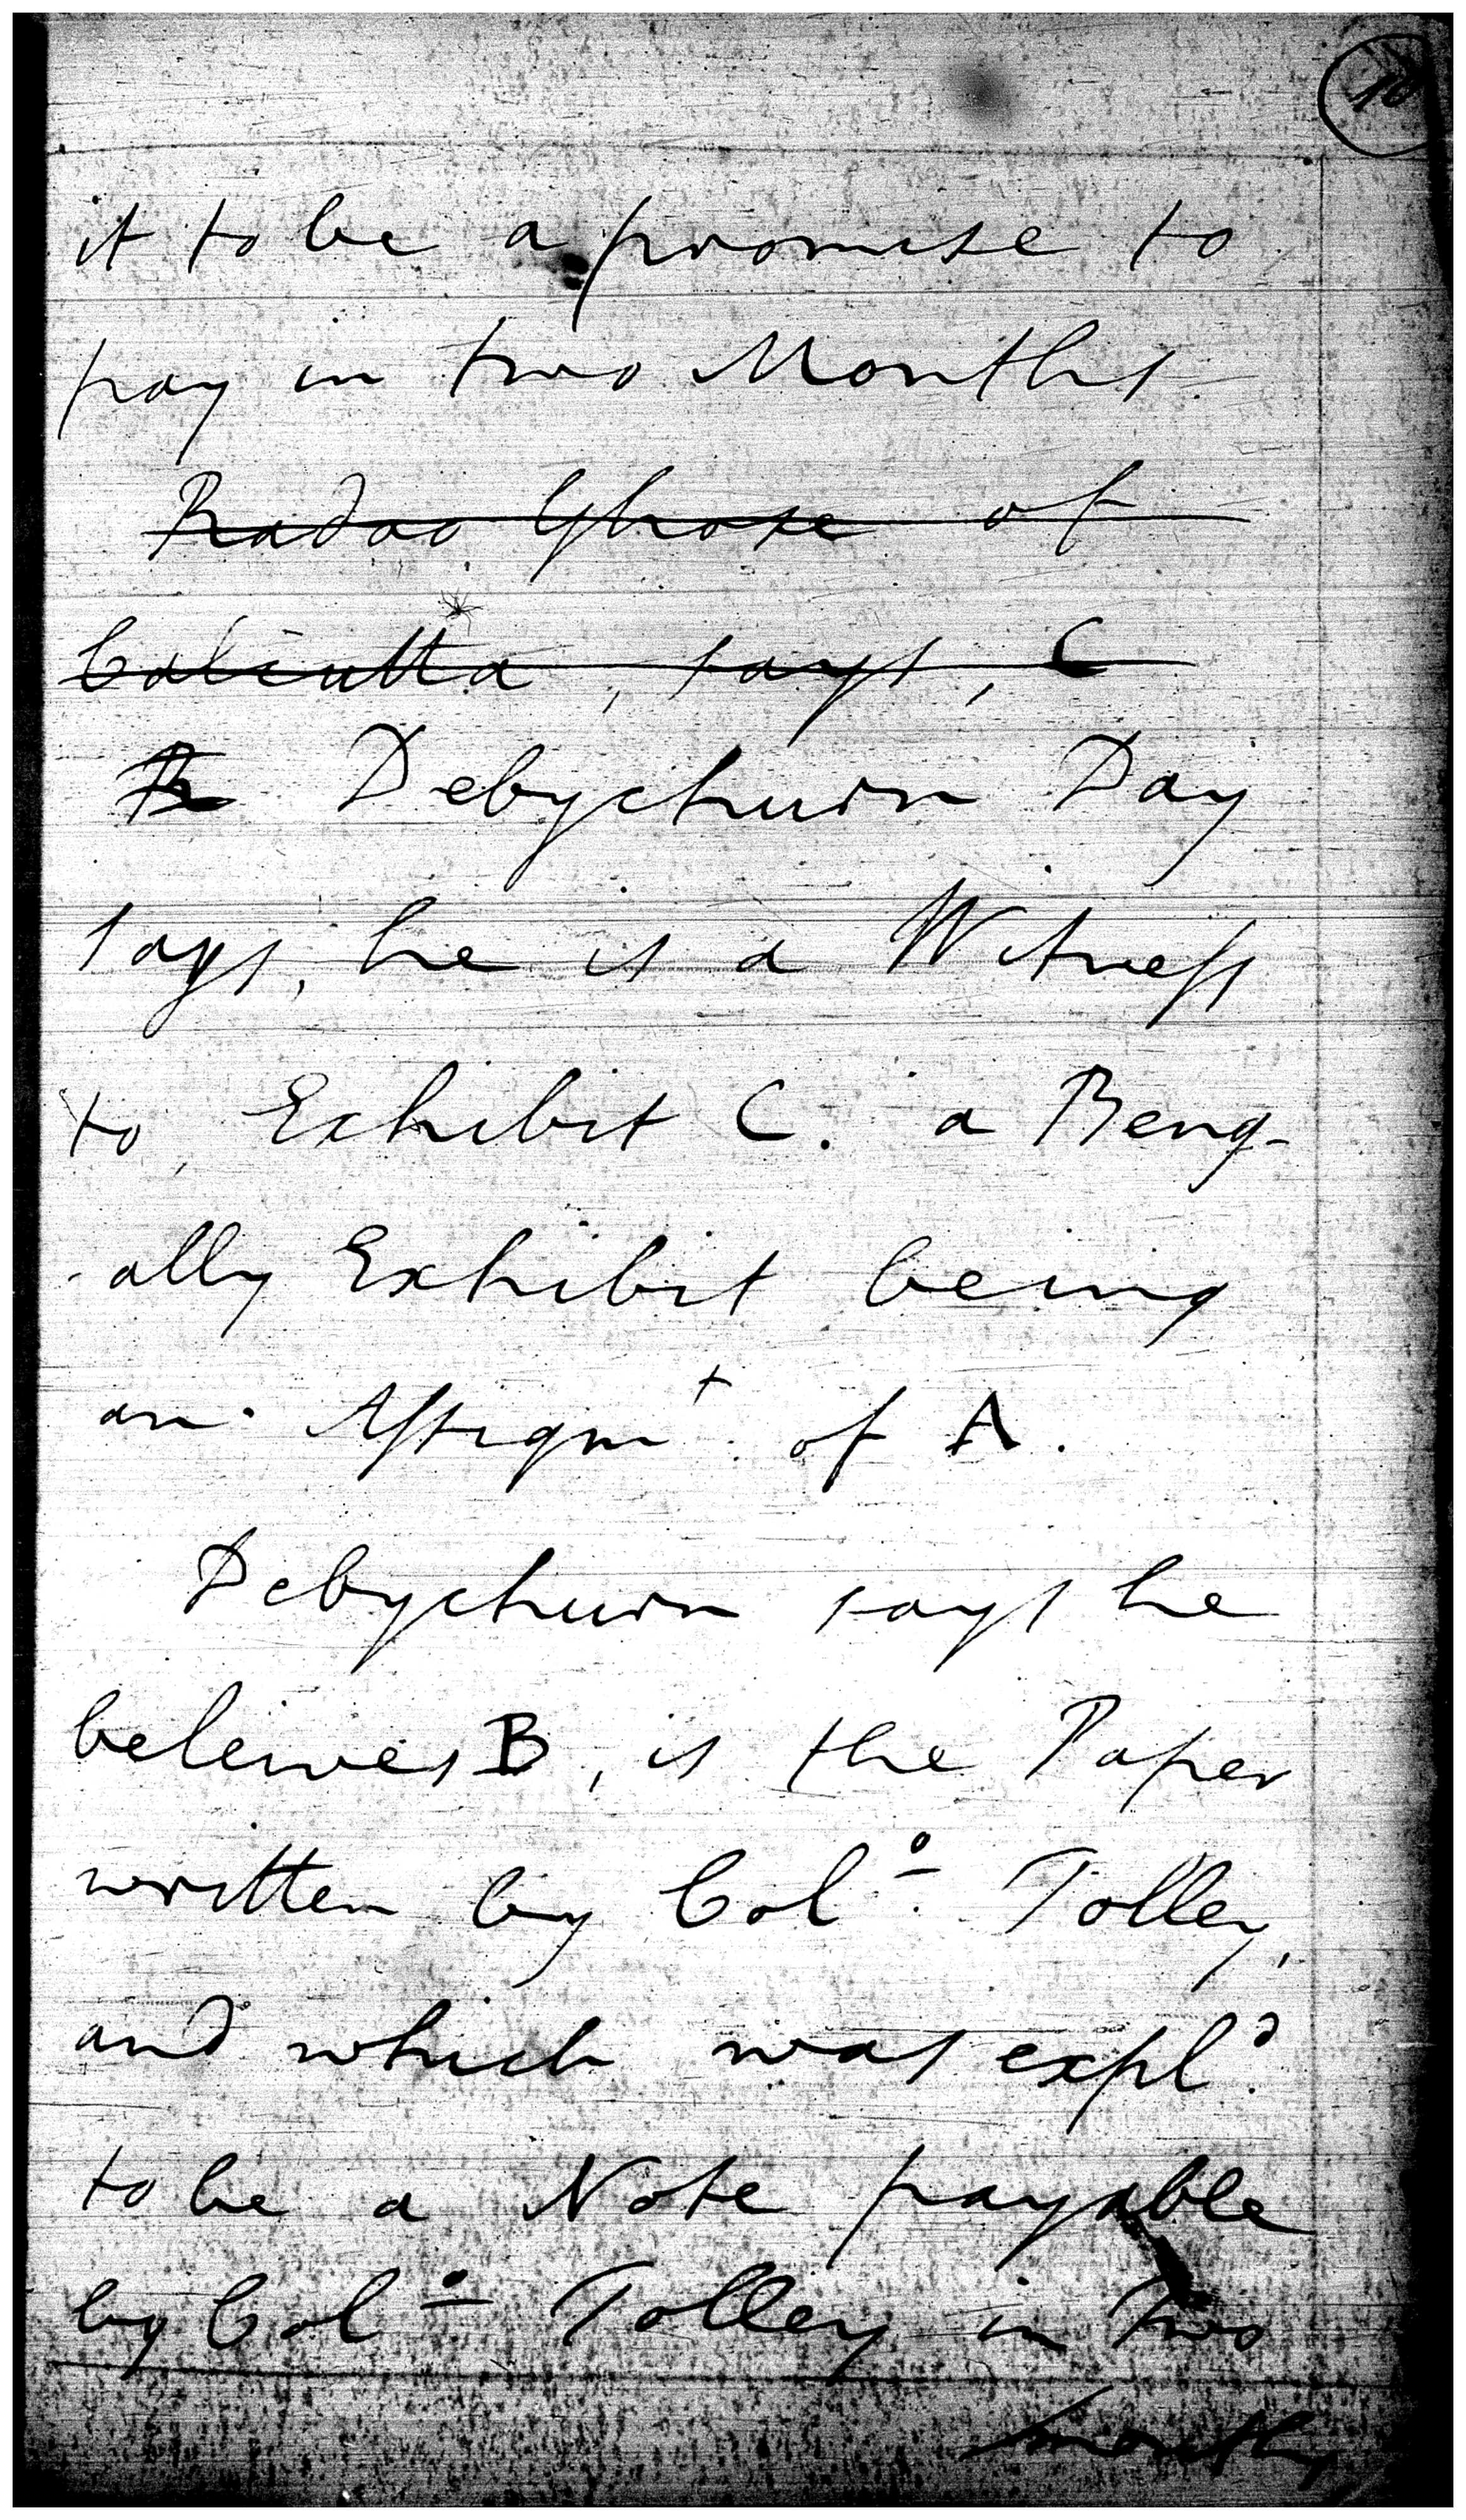 it to be a promise to
pay in two Months.
Radao Ghose of
Calcutta, says, C
Debychurn Day
says, he is a Witness
to, Exhibit C. a Beng-
-ally Exhibit being
an Assignt. of A.
Debychurn says he
beleives B, is the Paper
written by Colo. Tolley,
and which was expld.
to be a Note payable
by Colo. Tolley in two
months